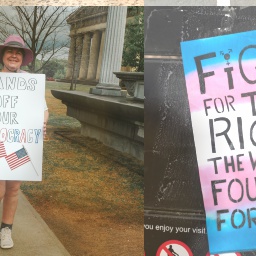 ANDS
OFF
OUR
OCRACY
FiG
FOR T
RIG
THE W
FOU
FOR
ou enjoy your visit